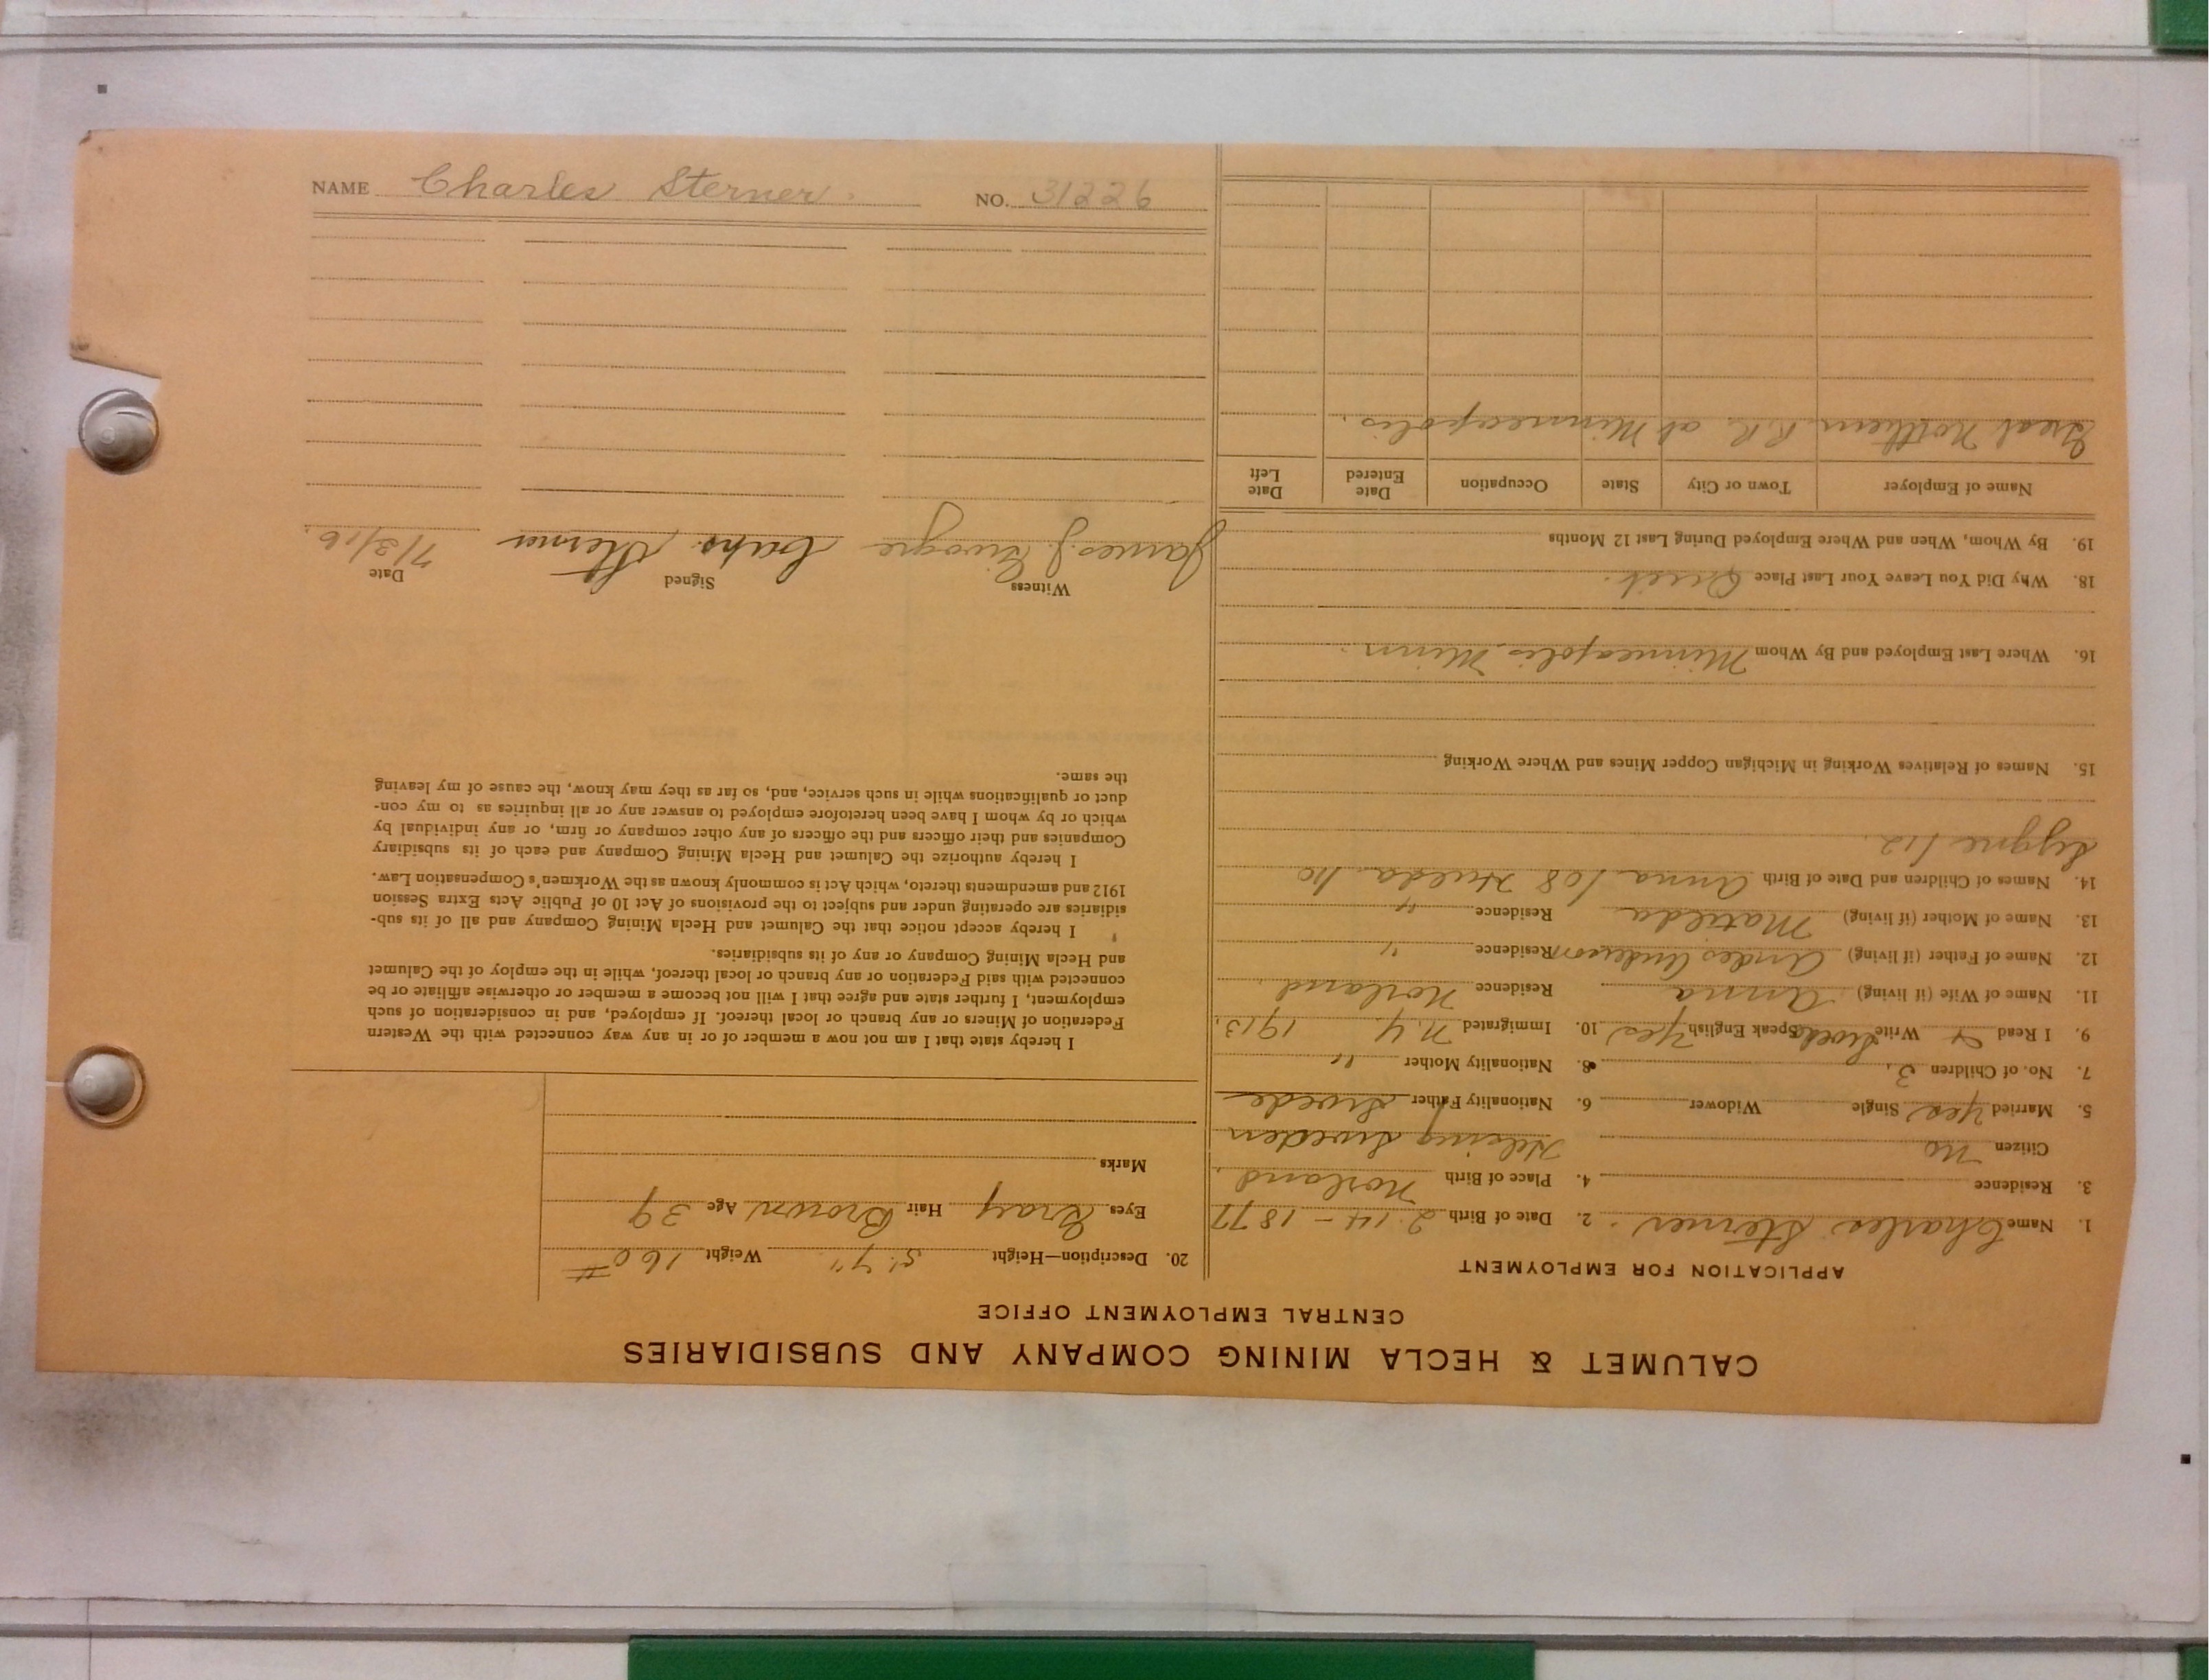 NAME Charles Sterner. NO. 31226
CALUMET & HECLA MINING COMPANY AND SUBSIDIARIES
CENTRAL EMPLOYMENT OFFICE
APPLICATION FOR EMPLOYMENT
1. Name Charles Sterner. 2. Date of Birth 2-14-1877
3. Residence 4. Place of Birth Norland,
Citizen no Sweden
5. Married Yes Single Widower 6. Nationality Father Swede
7. No. of Children 3. 8. Nationality Mother "
9. I Read & Write Swede Speak English Yes 10. Immigrated N.Y. 1913.
11. Name of Wife (if living) Anna Residence Norland
12. Name of Father (if living) Andes Anderson Residence "
13. Name of Mother (if living) Matilda Residence "
14. Names of Children and Date of Birth Anna /08 Hulda /10
/12.
15. Names of Relatives Working in Michigan Copper Mines and Where Working
16. Where Last Employed and By Whom Minneapolis Minn.
18. Why Did You Leave Your Last Place Quit.
19. By Whom, When and Where Employed During Last 12 Months
Name of Employer Town or City State Occupation Date Entered Date Left
Great Northern R.R. at Minneapolis.
20. Description—Height 5' 7" Weight 160#
Eyes Gray Hair Brown Age 39
Marks
I hereby state that I am not now a member of or in any way connected with the Western
Federation of Miners or any branch or local thereof. If employed, and in consideration of such
employment, I further state and agree that I will not become a member or otherwise affiliate or be
connected with said Federation or any branch or local thereof, while in the employ of the Calumet
and Hecla Mining Company or any of its subsidiaries.
I hereby accept notice that the Calumet and Hecla Mining Company and all of its sub-
sidiaries are operating under and subject to the provisions of Act 10 of Public Acts Extra Session
1912 and amendments thereto, which Act is commonly known as the Workmen's Compensation Law.
I hereby authorize the Calumet and Hecla Mining Company and each of its subsidiary
Companies and their officers and the officers of any other company or firm, or any individual by
which or by whom I have been heretofore employed to answer any or all inquiries as to my con-
duct or qualifications while in such service, and, so far as they may know, the cause of my leaving
the same.
Witness Signed Date
James J. Sterner 7/3/16.